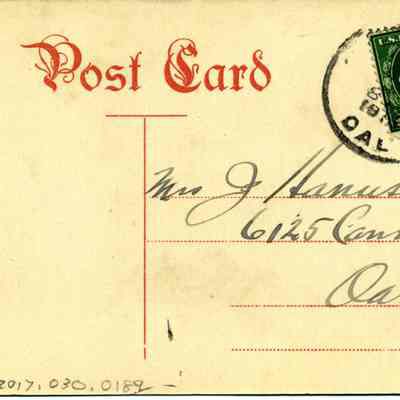 Post Card
U.S.
191
CAL
Mrs J Hanus
6125 Can
Oa
2017.030.0189 -